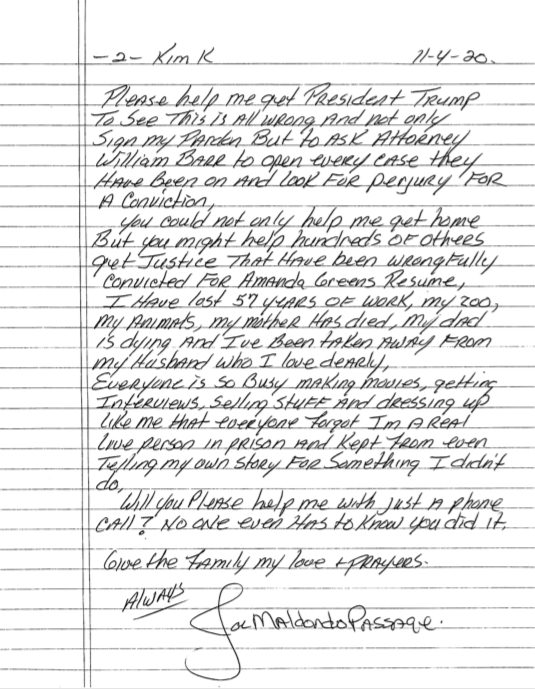 -2- Kim K 11-4-20.
Please help me get President Trump
To See This is All wrong And not only
Sign my Pardon But to Ask Attorney
William Barr to open every case they
Have Been on And look For perjury For
A Conviction,
you could not only help me get home
But you might help hundreds of others
get Justice That Have been wrongfully
Convicted For Amanda Greens Resume,
I Have lost 57 years of work, my zoo,
my Animals, my mother Has died, my dad
is dying And I've Been taken Away From
my Husband who I love dearly,
Everyone is so Busy making movies, getting
Interviews, Selling Stuff And dressing up
like me that everyone forgot Im A Real
live person in prison And Kept From even
Telling my own Story For Something I didn't
do,
Will you Please help me with just A phone
call? No one even Has to Know you did it.
Give the Family my love + Prayers.
Always
Joe Maldondo Passage.